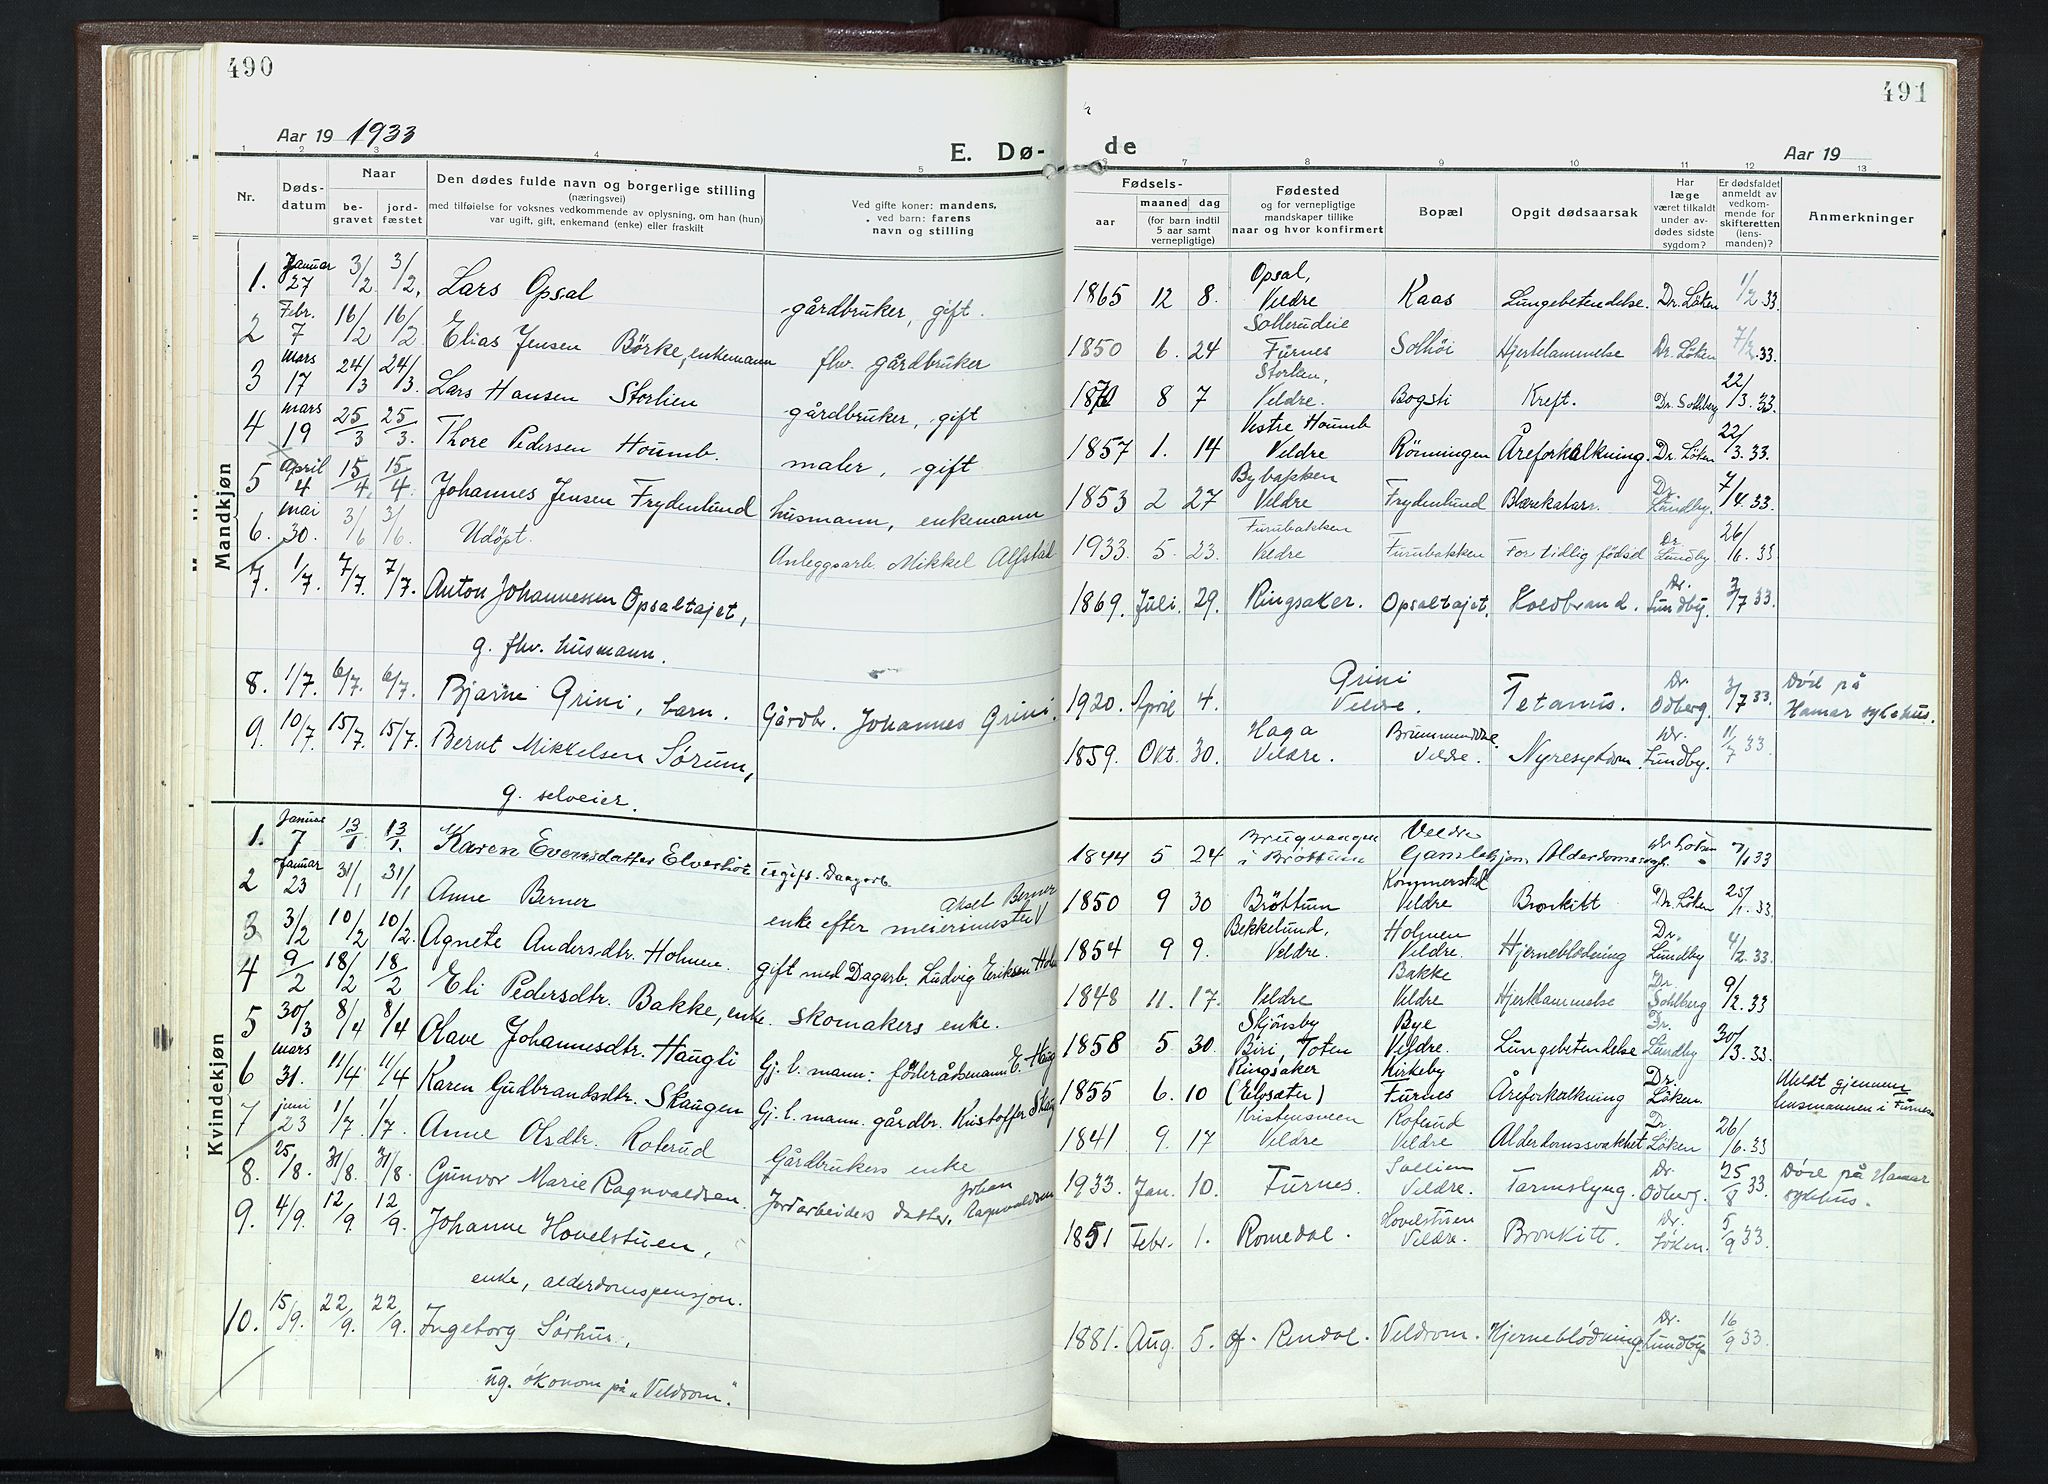 490
Aar 19 1933
E. Dø-
1 2 3 4 5
Nr.
Døds-
datum
Naar
be-
gravet
jord-
fæstet
Den dødes fulde navn og borgerlige stilling
(næringsvei)
med tilføielse for voksnes vedkommende av oplysning, om han (hun)
var ugift, gift, enkemand (enke) eller fraskilt
Ved gifte koner: mandens,
ved barn: farens
navn og stilling
Mandkjøn
1. Januar 27 3/2 3/2. Lars Opsal gårdbruker, gift.
2 Febr. 7 16/2 16/2 Elias Jensen Börke, enkemann fhv. gårdbruker
3 mars 17 24/3 24/3. Lars Hansen Storlien gårdbruker, gift
4 mars 19 25/3 25/3. Thore Pedersen Houmb. maler, gift
5 April 4 15/4. 15/4 Johannes Jensen Frydenlund husmann, enkemann
6. mai 30. 3/6 3/6. Udöpt. Anleggsarb. Mikkel Alfstad
7. 1/7. 7/7. 7/7. Anton Johannessen Opsaltajet,
g. fhv. husmann.
8. 1/7. 6/7. 6/7. Bjarne Grini, barn. Gårdbr. Johannes Grini.
9. 10/7. 15/7. 15/7. Bernt Mikkelsen Sørum,
g. selveier.
Kvindekjøn
1. Januar 7 13/1 13/1. Karen Evensdatter Elveshöi ugift. Dagarb.
2 Januar 23 31/1 31/1 Anne Berner enke efter meierimester Aksel Berner
3 3/2 10/2 10/2. Agnete Andersdtr. Holmen. gift med Dagarb. Ludvig Eriksen Holm
4 9/2 18/2 18/2 Eli Pedersdtr. Bakke, enke. skomakers enke.
5 30/3 8/4 8/4 Olave Johannesdtr. Haugli Gj. l. mann: föderådsmann E. Haug
6 mars 31. 11/4 11/4 Karen Gudbrandsdtr. Skaugen Gj. l. mann. gårdbr. Kristoffer Skaug
7 juni 23 1/7 1/7. Anne Olsdtr. Roterud Gårdbrukers enke
8. 25/8. 31/8. 31/8. Gunvor Marie Ragnvaldsen. Jordarbeiders datter. Johan Ragnvaldsen
9. 4/9. 12/9. 12/9. Johanne Hovelstuen,
enke, alderdomspensjon.
10. 15/9. 22/9. 22/9. Ingeborg Sørhus,
ug. økonom på "Veldrom".
491
de
Aar 19
6 7 8 9 10 11 12 13
Fødsels-
aar
maaned dag
(for barn indtil
5 aar samt
vernepligtige)
Fødested
og for vernepligtige
mandskaper tillike
naar og hvor konfirmert
Bopæl
Opgit dødsaarsak
Har
læge
været tilkaldt
under av-
dødes sidste
sygdom?
Er dødsfaldet
anmeldt av
vedkom-
mende for
skifteretten
(lens-
manden)?
Anmerkninger
1865 12 8. Opsal, Veldre Kaas Lungebetendelse. Dr. Löken 1/2 33.
1850 6. 24 Sollerudeie Furnes Solhöi Hjertelammelse Dr. Löken 7/2. 33.
1870 8 7 Storlien, Veldre. Bogsti Kreft. Dr. Sohlberg 22/3. 33.
1857 1. 14 Vestre Houmb Veldre Rönningen Åreforkalkning. Dr. Löken 22/3. 33.
1853 2 27 Bybakken Veldre Frydenlund Blærekatarr. Dr. Lundby. 7/4. 33.
1933. 5. 23. Furubakken Veldre Furubakken For tidlig födsel Dr. Lundby 26/6. 33
1869. Juli. 29. Ringsaker. Opsaltajet. Koldbrand. Dr. Lundby. 3/7 33.
1920. April 4. Grini Veldre. Tetanus. Dr. Odberg. 3/7 33. Död på
Hamar sykehus.
1859. Okt. 30. Haga Veldre. Brummunddal. Veldre. Nyresykdom. Dr. Lundby. 11/7 33.
1844 5 24 Brugvangen i Bröttum Veldre Gamlehjem Alderdomssvgh. Dr Löken 7/1 33
1850 9 30 Bröttum Kommerstad Veldre Bronkitt Dr. Löken 25/1. 33.
1854 9 9. Bekkelund, Veldre. Holmen Veldre. Hjerneblödning Dr. Lundby 4/2. 33.
1848 11. 17. Veldre Bakke Veldre Hjertelammelse Dr. Sohlberg 9/2. 33
1858 5. 30. Skjönsby Biri, Toten Bye Veldre. Lungebetendelse Dr. Lundby 30/3. 33.
1855 6. 10 Ringsaker (Elvsæter) Kirkeby Furnes Åreforkalkning Dr. Löken. Meldt gjennem
lensmannen i Furnes
1841 9. 17 Kristensveen Veldre Roterud Veldre Alderdomssvakhet Dr. Löken 26/6. 33
1933. Jan. 10. Furnes. Sollien Veldre. Tarmslyng. Dr. Odberg. 25/8 33. Död på Hamar
sykehus.
1851 Febr. 1. Romedal. Hovelstuen Veldre. Bronkitt. Dr. Löken. 5/9 33.
1881. Aug. 5. Ø. Rendal. Veldrom. Hjerneblödning. Dr. Lundby. 16/9 33.